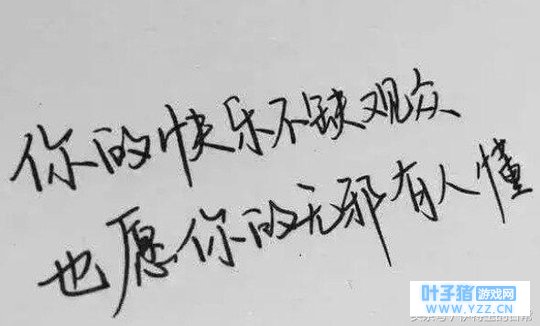 你的快乐不缺观众
也愿你的无邪有人懂
叶子猪游戏网
www.yzz.cn